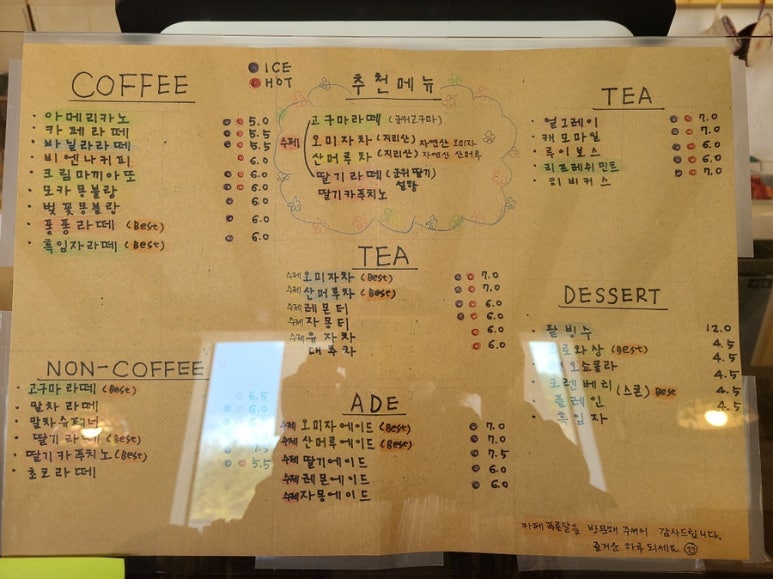 COFFEE
ICE
HOT
· 아메리카노 5.0
· 카페라떼 5.5
· 바닐라라떼 5.5
· 비엔나커피 6.0
· 크림마끼아또 6.0
· 모카몽블랑 6.0
· 벚꽃몽블랑 6.0
· 퐁퐁라떼 (Best) 6.0
· 흑임자라떼 (Best) 6.0
추천메뉴
고구마라떼 (군위고구마)
수제
오미자차 (지리산) 자연산 오미자
산머루차 (지리산) 자연산 산머루
딸기라떼 (군위 딸기)
설향
딸기카푸치노
TEA
· 얼그레이 7.0
· 캐모마일 7.0
· 루이보스 6.0
· 리프레쉬민트 7.0
· 히비커스
TEA
수제 오미자차 (Best) 7.0
수제 산머루차 (Best) 7.0
수제 레몬티 6.0
수제 자몽티 6.0
수제 유자차 6.0
대추차 6.0
NON-COFFEE
· 고구마라떼 (Best) 6.5
· 말차라떼
· 말차슈페너
· 딸기라떼 (Best)
· 딸기카푸치노 (Best)
· 초코라떼 5.5
ADE
수제 오미자에이드 (Best) 7.0
수제 산머루에이드 (Best) 7.0
수제 딸기에이드 7.5
수제 레몬에이드 6.0
수제 자몽에이드 6.0
DESSERT
· 팥빙수 12.0
· 크로와상 (Best) 4.5
쇼콜라 4.5
· 크렌베리 (스콘) Best 4.5
· 플레인 4.5
· 흑임자
카페푸른달을 방문해 주셔서 감사드립니다.
즐거운 하루 되세요